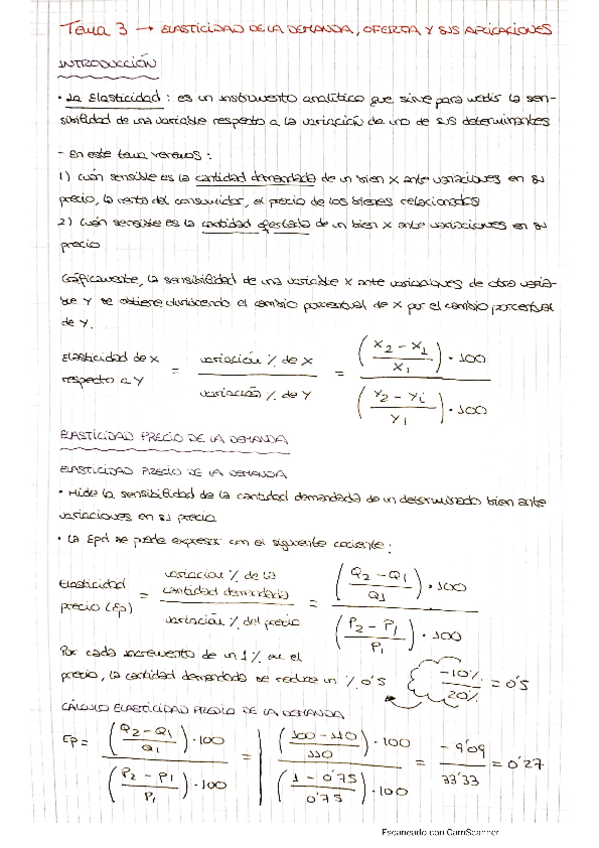 Tema 3 → ELASTICIDAD DE LA DEMANDA, OFERTA Y SUS APLICACIONES
INTRODUCCIÓN
· La Elasticidad : es un instrumento analítico que sirve para medir la sen-
sibilidad de una variable respecto a la variación de uno de sus determinantes
- En este tema veremos :
1) Cuán sensible es la cantidad demandada de un bien X ante variaciones en su
precio, la renta del consumidor, el precio de los bienes relacionados
2) Cuán sensible es la cantidad ofertada de un bien X ante variaciones en su
precio
Gráficamente, la sensibilidad de una variable X ante variaciones de otra varia-
ble Y se obtiene dividiendo el cambio porcentual de X por el cambio porcentual
de Y.
Elasticidad de X respecto a Y = variación % de X / variación % de Y = ((X2 - X1) / X1) · 100 / ((Y2 - Yi) / Y1) · 100
ELASTICIDAD PRECIO DE LA DEMANDA
ELASTICIDAD PRECIO DE LA DEMANDA
· Mide la sensibilidad de la cantidad demandada de un determinado bien ante
variaciones en su precio
· La Epd se puede expresar con el siguiente cociente :
Elasticidad precio (Ep) = variación % de la cantidad demandada / variación % del precio = ((Q2 - Q1) / Q1) · 100 / ((P2 - P1) / P1) · 100
Por cada incremento de un 1% en el
precio, la cantidad demandada se reduce un % 0'5
-10% / 20% = 0'5
CÁLCULO ELASTICIDAD PRECIO DE LA DEMANDA
Ep = ((Q2 - Q1) / Q1) · 100 / ((P2 - P1) / P1) · 100 = | ((100 - 110) / 110) · 100 / ((1 - 0'75) / 0'75) · 100 | = -9'09 / 33'33 = 0'27
Escaneado con CamScanner